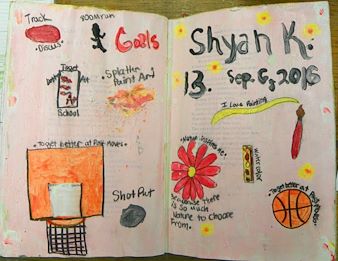 Track
800M run
Discus
Goals
Splatter
Paint Art
To get
better
At
School
To get better at Post-Moves
Shot Put
Shyan K.
13. Sep. 6, 2016
I Love Painting
Nature Inspires Me
Because There
is so Much
Nature to Choose
From.
Watercolor
To get better at